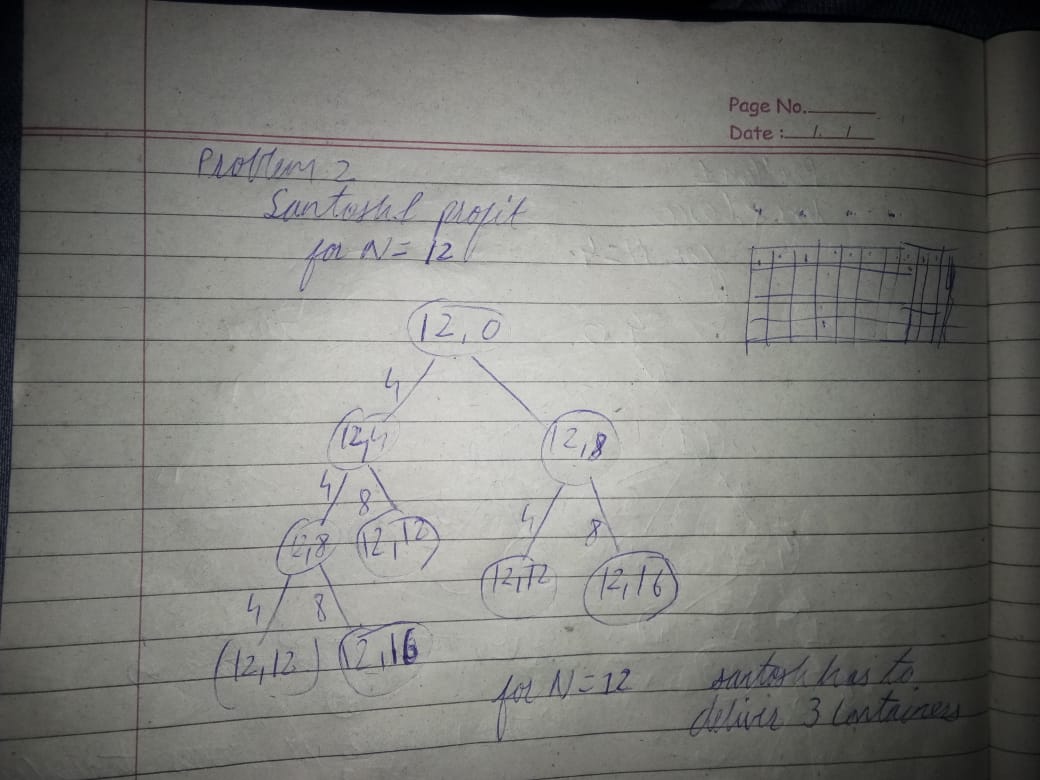 Page No.
Date : / /
Problem 2
Santosh profit
for N = 12
12, 0
4
12,4
12,8
4
8
4
8
12,8
12,12
12,12
12,16
4
8
(12,12)
12,16
for N = 12
santosh has to
deliver 3 containers